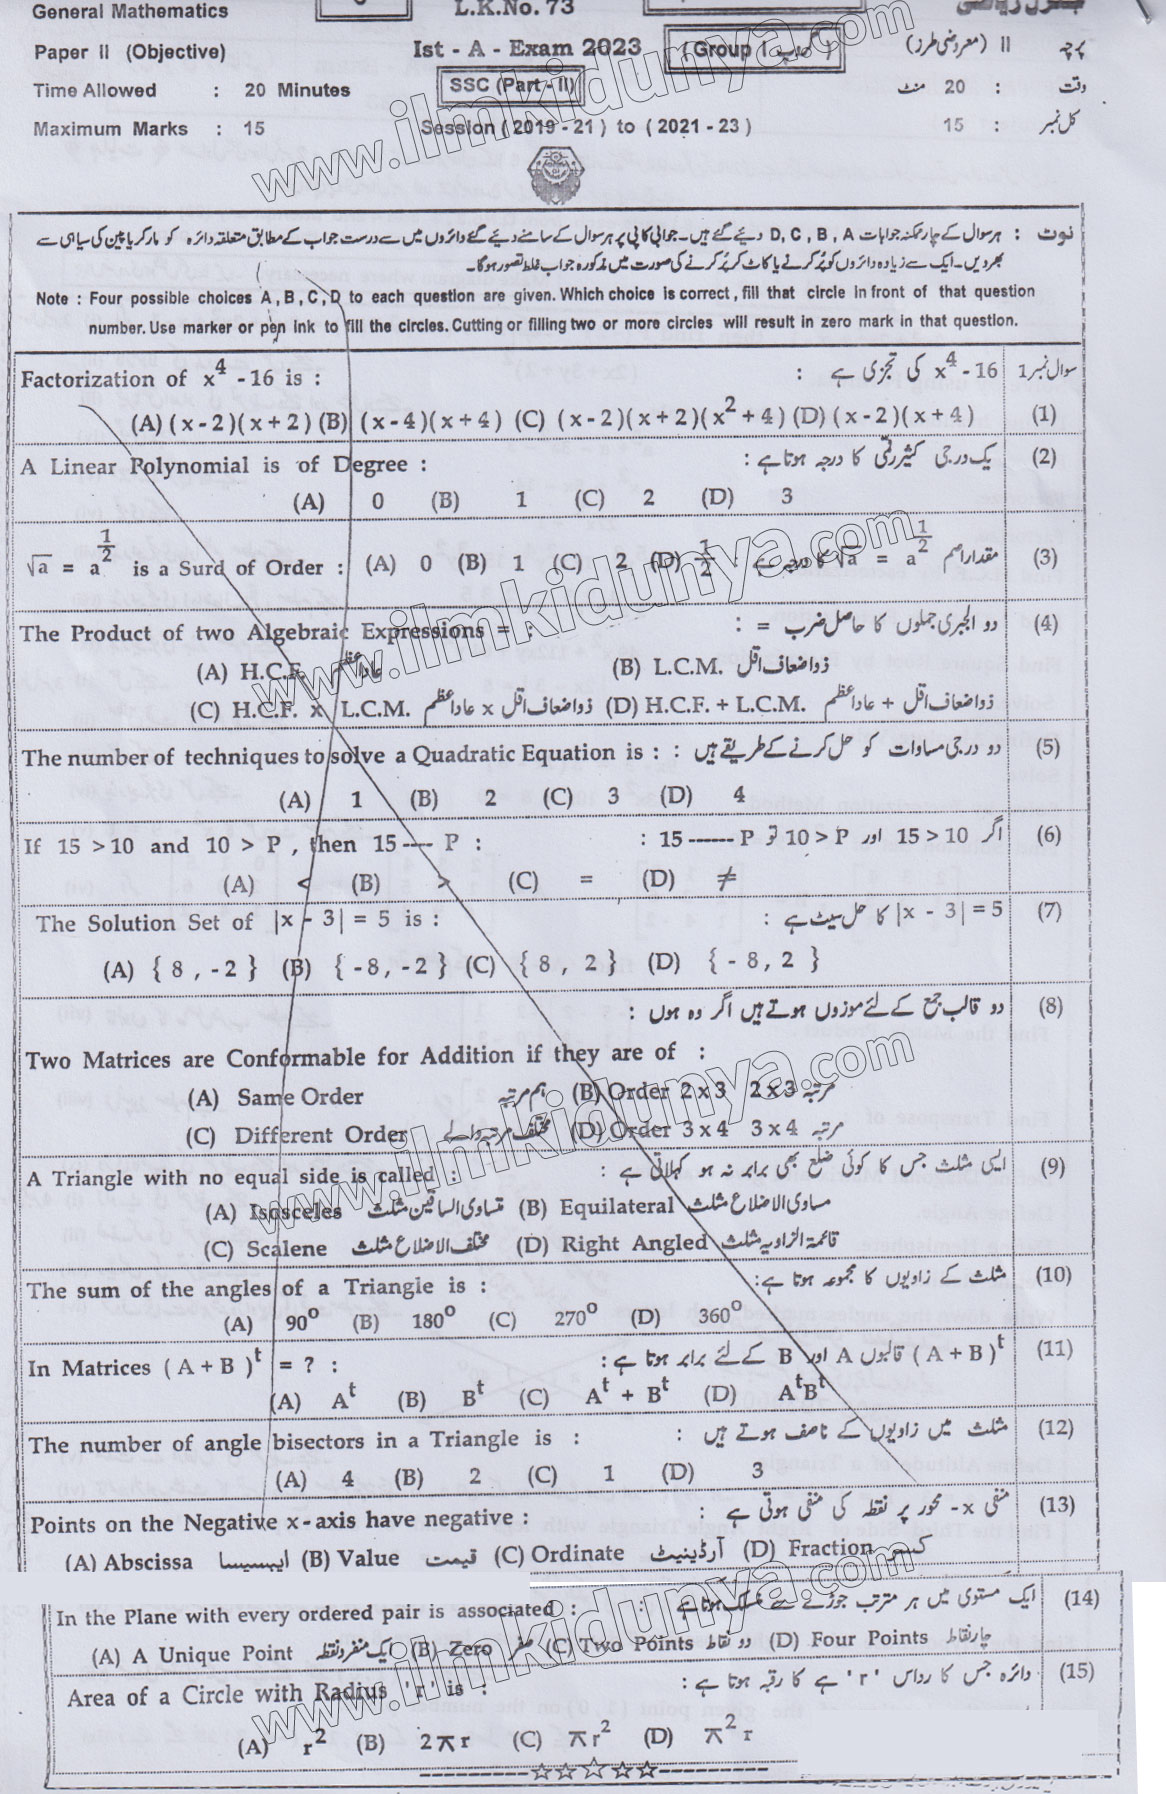 General Mathematics
L.K.No. 73
جنرل ریاضی
Paper II (Objective)
Ist - A - Exam 2023
(Group I گروپ)
پرچہ II (معروضی طرز)
Time Allowed : 20 Minutes
SSC (Part - II)
وقت : 20 منٹ
Maximum Marks : 15
Session (2019 - 21) to (2021 - 23)
کل نمبر : 15
نوٹ : ہر سوال کے چار ممکنہ جوابات D, C, B, A دیئے گئے ہیں۔ جوابی کاپی پر ہر سوال کے سامنے دیئے گئے دائروں میں سے درست جواب کے مطابق متعلقہ دائرہ کو مارکر یا پین کی سیاہی سے
بھر دیں۔ ایک سے زیادہ دائروں کو پُر کرنے یا کاٹ کر پُر کرنے کی صورت میں مذکورہ جواب غلط تصور ہوگا۔
Note : Four possible choices A, B, C, D to each question are given. Which choice is correct, fill that circle in front of that question
number. Use marker or pen ink to fill the circles. Cutting or filling two or more circles will result in zero mark in that question.
سوال نمبر 1
Factorization of x⁴ - 16 is : x⁴ - 16 کی تجزی ہے :
(A) (x - 2)(x + 2) (B) (x - 4)(x + 4) (C) (x - 2)(x + 2)(x² + 4) (D) (x - 2)(x + 4) (1)
A Linear Polynomial is of Degree : یک درجی کثیر رقمی کا درجہ ہوتا ہے : (2)
(A) 0 (B) 1 (C) 2 (D) 3
√a = a^(1/2) is a Surd of Order : (A) 0 (B) 1 (C) 2 (D) 1/2 مقدار اصم √a = a^(1/2) کا درجہ ہے : (3)
The Product of two Algebraic Expressions = : دو الجبری جملوں کا حاصل ضرب = : (4)
(A) H.C.F. عاد اعظم (B) L.C.M. ذواضعاف اقل
(C) H.C.F. x L.C.M. ذواضعاف اقل x عاد اعظم (D) H.C.F. + L.C.M. ذواضعاف اقل + عاد اعظم
The number of techniques to solve a Quadratic Equation is : دو درجی مساوات کو حل کرنے کے طریقے ہیں : (5)
(A) 1 (B) 2 (C) 3 (D) 4
If 15 > 10 and 10 > P, then 15 ---- P : اگر 15 > 10 اور 10 > P تو 15 ------ P : (6)
(A) < (B) > (C) = (D) ≠
The Solution Set of |x - 3| = 5 is : |x - 3| = 5 کا حل سیٹ ہے : (7)
(A) { 8 , -2 } (B) { -8, -2 } (C) { 8 , 2 } (D) { - 8, 2 }
دو قالب جمع کے لئے موزوں ہوتے ہیں اگر وہ ہوں : (8)
Two Matrices are Conformable for Addition if they are of :
(A) Same Order ہم مرتبہ (B) Order 2 x 3 مرتبہ 2 x 3
(C) Different Order مختلف مرتبہ والے (D) Order 3 x 4 مرتبہ 3 x 4
A Triangle with no equal side is called : ایسی مثلث جس کا کوئی ضلع بھی برابر نہ ہو کہلاتی ہے : (9)
(A) Isosceles متساوی الساقین مثلث (B) Equilateral مساوی الاضلاع مثلث
(C) Scalene مختلف الاضلاع مثلث (D) Right Angled قائمۃ الزاویہ مثلث
The sum of the angles of a Triangle is : مثلث کے زاویوں کا مجموعہ ہوتا ہے : (10)
(A) 90° (B) 180° (C) 270° (D) 360°
In Matrices (A + B)ᵗ = ? : (A + B)ᵗ قالبوں A اور B کے لئے برابر ہوتا ہے : (11)
(A) Aᵗ (B) Bᵗ (C) Aᵗ + Bᵗ (D) AᵗBᵗ
The number of angle bisectors in a Triangle is : مثلث میں زاویوں کے ناصف ہوتے ہیں : (12)
(A) 4 (B) 2 (C) 1 (D) 3
Points on the Negative x-axis have negative : منفی x- محور پر نقطہ کی منفی ہوتی ہے : (13)
(A) Abscissa ایبسیسا (B) Value قیمت (C) Ordinate آرڈینیٹ (D) Fraction کسر
In the Plane with every ordered pair is associated : ایک مستوی میں ہر مترتب جوڑے سے منسلک ہوتا ہے : (14)
(A) A Unique Point ایک منفرد نقطہ (B) Zero صفر (C) Two Points دو نقاط (D) Four Points چار نقاط
Area of a Circle with Radius 'r' is : دائرہ جس کا رداس 'r' ہے کا رقبہ ہوتا ہے : (15)
(A) r² (B) 2πr (C) πr² (D) π²r
www.ilmkidunya.com
www.ilmkidunya.com
www.ilmkidunya.com
www.ilmkidunya.com